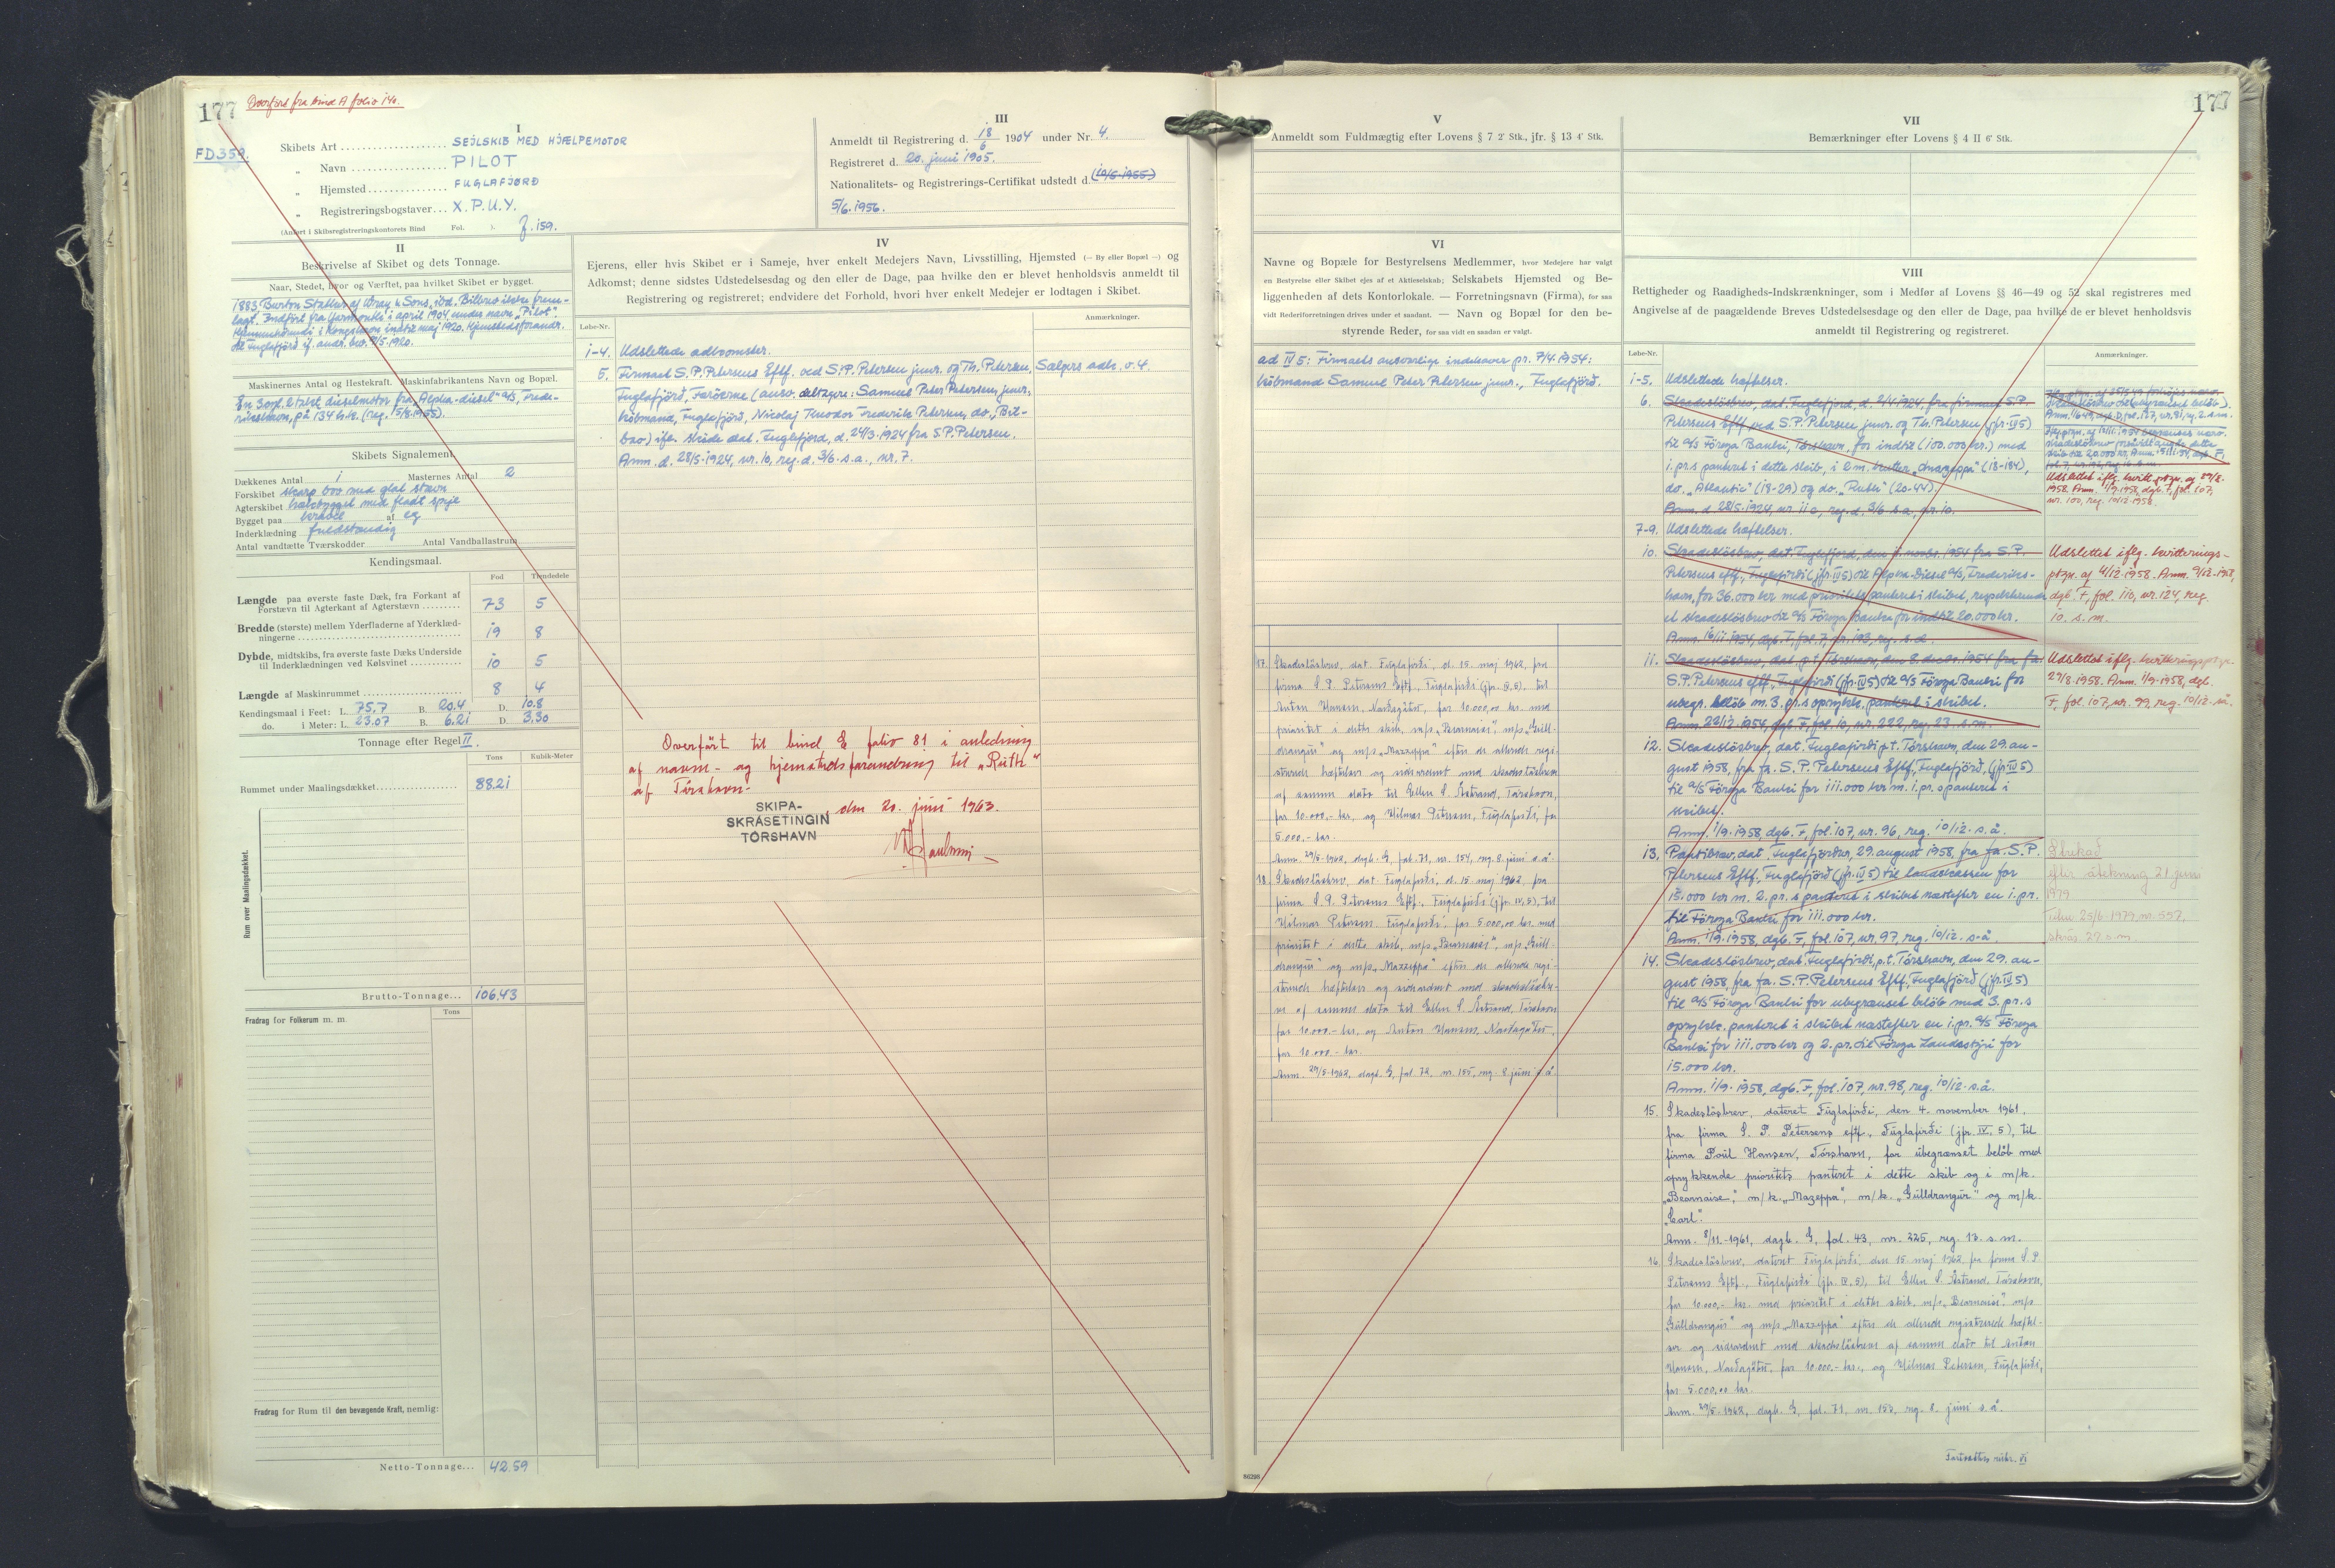 177
Overført fra bind A folio 140.
FD.359.
I
Skibets Art SEJLSKIB MED HJÆLPEMOTOR
" Navn PILOT
" Hjemsted FUGLAFJØRÐ
" Registreringsbogstaver X.P.U.Y.
(Anført i Skibsregistreringskontorets Bind Fol. ). f. 159.
III
Anmeldt til Registrering d. 18/6 1904 under Nr. 4.
Registreret d. 20. juni 1905.
Nationalitets- og Registrerings-Certifikat udstedt d. (10/5-1955)
5/6.1956.
II
Beskrivelse af Skibet og dets Tonnage.
Naar, Stedet, hvor og Værftet, paa hvilket Skibet er bygget.
1883 Burton Stather af Wray & Sons, ibd. Bilbrev ikke frem-
lagt. Indført fra Yarmouth i april 1904 under navn "Pilot".
Hjemmehørende i Kongshavn indtil maj 1920. Hjemstedsforandr.
til Fuglefjord if. andr. bev. 7/5-1920.
Maskinernes Antal og Hestekraft. Maskinfabrikantens Navn og Bopæl.
En 3 cyl. 2 takt dieselmotor fra "Alpha-diesel" A/S, Frede-
rikshavn, på 134 h.k. (reg. 5/8-1955).
Skibets Signalement.
Dækkenes Antal 1 Masternes Antal 2
Forskibet skarp bov med glat stævn
Agterskibet halvbygget med fladt spejl
Bygget paa kravel af eg
Inderklædning fuldstændig
Antal vandtætte Tværskodder Antal Vandballastrum
Kendingsmaal.
Fod Tiendedele
Længde paa øverste faste Dæk, fra Forkant af
Forstævn til Agterkant af Agterstævn 73 5
Bredde (største) mellem Yderfladerne af Yderklæd-
ningerne 19 8
Dybde, midtskibs, fra øverste faste Dæks Underside
til Inderklædningen ved Kølsvinet 10 5
Længde af Maskinrummet 8 4
Kendingsmaal i Feet: L. 75,7 B. 20.4 D. 10.8
do. i Meter: L. 23.07 B. 6.21 D. 3.30
Tonnage efter Regel II.
Tons Kubik-Meter
Rummet under Maalingsdækket 88.21
Rum over Maalingsdækket.
Brutto-Tonnage... 106.43
Tons
Fradrag for Folkerum m. m.
Fradrag for Rum til den bevægende Kraft, nemlig:
Netto-Tonnage... 42.59
IV
Ejerens, eller hvis Skibet er i Sameje, hver enkelt Medejers Navn, Livsstilling, Hjemsted (— By eller Bopæl —) og
Adkomst; denne sidstes Udstedelsesdag og den eller de Dage, paa hvilke den er blevet henholdsvis anmeldt til
Registrering og registreret; endvidere det Forhold, hvori hver enkelt Medejer er lodtagen i Skibet.
Løbe-Nr. Anmærkninger.
1-4. Udslettede adkomster.
5. Firmaet S.P. Petersens Eftf. ved S.P. Petersen junr. og Th. Petersen, Sælgers adk. v. 4.
Fuglefjord, Færøerne (ansv. deltagere: Samuel Peter Petersen junr.,
købmand, Fuglefjord, Nicolaj Theodor Frederik Petersen, do., Bil-
bao) ifl. skøde dat. Fuglefjord, d. 24/3-1924 fra S.P. Petersen.
Anm. d. 28/5-1924, nr. 10, reg. d. 3/6 s.a., nr. 7.
Overført til bind E folio 81 i anledning
af navne- og hjemstedsforandring til "Ruth"
af Tórshavn.
SKIPA-
SKRÁSETINGIN
TÓRSHAVN
den 20. juni 1963.
V
Anmeldt som Fuldmægtig efter Lovens § 7 2' Stk., jfr. § 13 4' Stk.
VI
Navne og Bopæle for Bestyrelsens Medlemmer, hvor Medejere har valgt
en Bestyrelse eller Skibet ejes af et Aktieselskab; Selskabets Hjemsted og Be-
liggenheden af dets Kontorlokale. — Forretningsnavn (Firma), for saa
vidt Rederiforretningen drives under et saadant. — Navn og Bopæl for den be-
styrende Reder, for saa vidt en saadan er valgt.
ad IV 5: Firmaets ansvarlige indehaver pr. 7/4-1954:
købmand Samuel Peter Petersen junr., Fuglefjørð.
17. Skadesløsbrev, dat. Fuglafirði, d. 15. maj 1962, fra
firma S. P. Petersens Eftf., Fuglafirði (jfr. IV, 5), til
Anton Hansen, Norðagøtu, for 10.000,00 kr. med
prioritet i dette skib, m/s "Bearnaise", m/s "Gull-
drangur" og m/s "Mazeppa" efter de allerede regi-
strerede hæftelser og sideordnet med skadesløsbreve
af samme dato til Ellen S. Åstrand, Tórshavn,
for 10.000,- kr. og Hilmar Petersen, Fuglafirði, for
5.000,- kr.
Anm. 29/5-1962, dagb. G, fol. 71, nr. 154, reg. 8. juni s.å.
18. Skadesløsbrev, dat. Fuglafirði, d. 15. maj 1962, fra
firma S. P. Petersens Eftf., Fuglafirði (jfr. IV, 5), til
Hilmar Petersen, Fuglafirði, for 5.000,00 kr. med
prioritet i dette skib, m/s "Bearnaise", m/s "Gull-
drangur" og m/s "Mazeppa" efter de allerede regi-
strerede hæftelser og sideordnet med skadesløsbre-
ve af samme dato til Ellen S. Åstrand, Tórshavn
for 10.000,- kr. og Anton Hansen, Norðagøtu,
for 10.000,- kr.
Anm. 29/5-1962, dagb. G, fol. 72, nr. 155, reg. 8. juni s.å.
86298
177
VII
Bemærkninger efter Lovens § 4 II 6' Stk.
VIII
Rettigheder og Raadigheds-Indskrænkninger, som i Medfør af Lovens §§ 46—49 og 52 skal registreres med
Angivelse af de paagældende Breves Udstedelsesdag og den eller de Dage, paa hvilke de er blevet henholdsvis
anmeldt til Registrering og registreret.
Løbe-Nr. Anmærkninger.
1-5. Udslettede hæftelser.
6. Skadesløsbrev, dat. Fuglefjord, d. 2/4-1924, fra firmaet S.P.
Petersens Eftf. ved S.P. Petersen junr. og Th. Petersen (jfr. IV 5)
til A/S Føroya Banki, Tórshavn, for indtil (100.000 kr.) med
1. pr.s panteret i dette skib, i 2 m. kutter "Mazeppa" (18-184),
do. "Atlantic" (18-29) og do. "Ruth" (20-44).
Anm. d. 28/5-1924, nr. 11 c, reg. d. 3/6 s.a., nr. 10.
Udslettet iflg. kvitt. ptgn. af 29/8-
1958. Anm. 1/9-1958, dgb. F, fol. 107,
nr. 100, reg. 10/12-1958.
7-9. Udslettede hæftelser.
10. Skadesløsbrev, dat. Fuglefjord, den 5. novbr. 1954 fra S.P.
Petersens eftf., Fuglefirði (jfr. IV 5) til Alpha-Diesel A/S, Frederiks-
havn, for 36.000 kr. med prioritets panteret i skibet, respekterende
et skadesløsbrev til A/S Føroya Banki for indtil 20.000 kr.
Anm. 16/11-1954, dgb. F, fol. 7, nr. 193, reg. s.d.
Udslettet iflg. kvitterings-
ptgn. af 4/12-1958. Anm. 9/12-1958,
dgb. F, fol. 110, nr. 124, reg.
10. s.m.
11. Skadesløsbrev, dat. p.t. Tórshavn, den 8. decbr. 1954 fra fa.
S.P. Petersens eftf., Fuglefirði (jfr. IV 5) til A/S Føroya Banki for
ubegr. beløb m. 3. pr.s oprykk. panteret i skibet.
Anm. 22/12-1954, dgb. F, fol. 10, nr. 222, reg. 23. s.m.
Udslettet iflg. kvitteringsptgn.
29/8-1958. Anm. 1/9-1958, dgb.
F, fol. 107, nr. 99, reg. 10/12-s.å.
12. Skadesløsbrev, dat. Fuglafirði p.t. Tórshavn, den 29. au-
gust 1958, fra fa. S.P. Petersens Eftf., Fuglafjørð, (jfr. IV 5)
til A/S Føroya Banki for 111.000 kr m. 1. pr.s panteret i
skibet.
Anm. 1/9-1958, dgb. F, fol. 107, nr. 96, reg. 10/12-s.å.
13. Pantibrev, dat. Fuglafjørður, 29. august 1958, fra fa. S.P.
Petersens Eftf., Fuglafjørð (jfr. IV 5) til landskassen for
15.000 kr m. 2. pr.s panteret i skibet næstefter en 1. pr.
til Føroya Banki for 111.000 kr.
Anm. 1/9-1958, dgb. F, fol. 107, nr. 97, reg. 10/12-s.å.
Strikað
eftir átekning 21 juni
1979
25/6-1979 nr. 557,
skrás. 27. s.m.
14. Skadesløsbrev, dat. Fuglafirði, p.t. Tórshavn, den 29. au-
gust 1958, fra fa. S.P. Petersens Eftf., Fuglafjørð (jfr. IV 5)
til A/S Føroya Banki for ubegrænset beløb med 3. pr.s
oprykk. panteret i skibet næstefter en 1. pr. A/S Føroya
Banki for 111.000 kr og 2. pr. til Føroya Landsstýri for
15.000 kr.
Anm. 1/9-1958, dgb. F, fol. 107, nr. 98, reg. 10/12-s.å.
15. Skadesløsbrev, dateret Fuglafirði, den 4. november 1961,
fra firma S. P. Petersens eftf., Fuglafirði (jfr. IV, 5), til
firma Poul Hansen, Tórshavn, for ubegrænset beløb med
oprykkende prioritets panteret i dette skib og i m/k.
"Bearnaise", m/k. "Mazeppa", m/k. "Gulldrangur" og m/k.
"Carl".
Anm. 8/11-1961, dagb. G, fol. 43, nr. 225, reg. 13. s.m.
16. Skadesløsbrev, dateret Fuglafirði, den 15 maj 1962 fra firma S P
Petersens Eftf., Fuglafirði (jfr. IV, 5), til Ellen S. Åstrand, Tórshavn,
for 10.000,- kr. med prioritet i dette skib, m/s "Bearnaise", m/s
"Gulldrangur" og m/s "Mazeppa" efter de allerede registrerede hæftel-
ser og sideordnet med skadesløsbreve af samme dato til Anton
Hansen, Norðagøtu, for 10.000,- kr., og Hilmar Petersen, Fuglafirði,
for 5.000,00 kr.
Anm. 29/5-1962, dagb. G, fol. 71, nr. 153, reg. 8. juni s.å.
Fortsættes rubr. VI